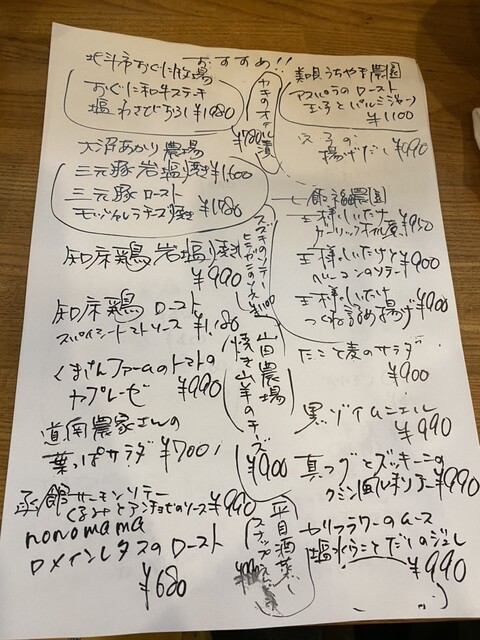 おすすめ!!
北斗市おぐに牧場
おぐに和牛ステーキ
塩 わさびおろし ¥1,980
大沼あかり農場
三元豚 岩塩焼き ¥1,600
三元豚 ロースト
モッツァレラチーズ焼き
知床鶏 岩塩焼き
¥990
知床鶏 ロースト
スパイシートマトソース
くまさんファームのトマトの
カプレーゼ ¥990
道南農家さんの
葉っぱサラダ ¥700
函館サーモンソテー
くるみとアンチョビのソース ¥990
nonomama
ロメインレタスのロースト
¥680
カキのオイル漬
¥780
スズキのソテー
山田農場
焼き山羊のチーズ
¥900
平目酒蒸し
美唄うちやま農園
アスパラのロースト
玉子とパルミジャーノ
¥1100
揚げだし ¥690
福田農園
王様しいたけ
ガーリックオイル ¥950
王様しいたけと
ベーコンのソテー ¥900
王様しいたけ
つくね詰め揚げ ¥900
たこと麦のサラダ
¥900
黒ゾイ ムニエル
¥990
真ツブとズッキーニの
クミン風味ソテー ¥990
カリフラワーのムース
塩水うにとだしのジュレ
¥990